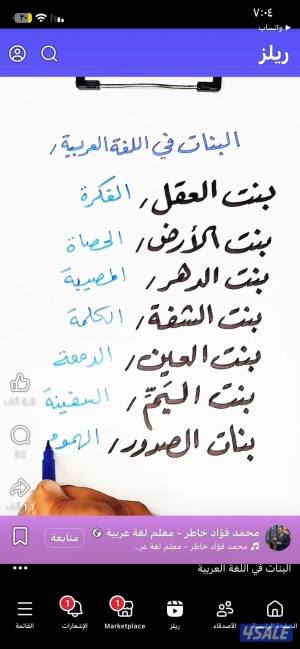 ٧:٠٤
واتساب
٢٠
ريلز
البنات في اللغة العربية /
بنت العقل / الفكرة
بنت الأرض / الحصاة
بنت الدهر / المصيبة
بنت الشفة / الكلمة
بنت العين / الدمعة
بنت اليَمّ / السفينة
بنات الصدور / الهموم
محمد فؤاد خاطر - معلم لغة عربية
متابعة
محمد فؤاد خاطر - معلم لغة عر...
البنات في اللغة العربية
الصفحة الرئيسية
الأصدقاء
ريلز
Marketplace
1
الإشعارات
1
القائمة
4SALE